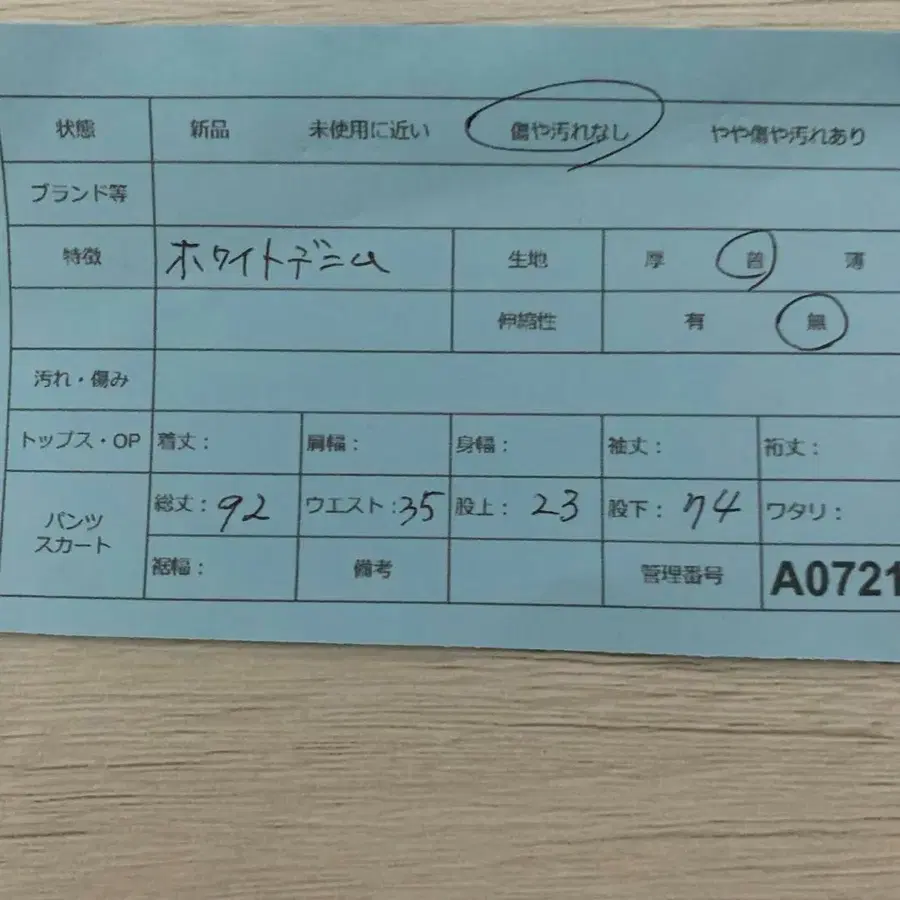 状態 新品 未使用に近い 傷や汚れなし やや傷や汚れあり
ブランド等
特徴 ホワイトデニム 生地 厚 普 薄
伸縮性 有 無
汚れ・傷み
トップス・OP 着丈： 肩幅： 身幅： 袖丈： 裄丈：
パンツ スカート 総丈：92 ウエスト：35 股上：23 股下：74 ワタリ：
裾幅： 備考 管理番号 A0721